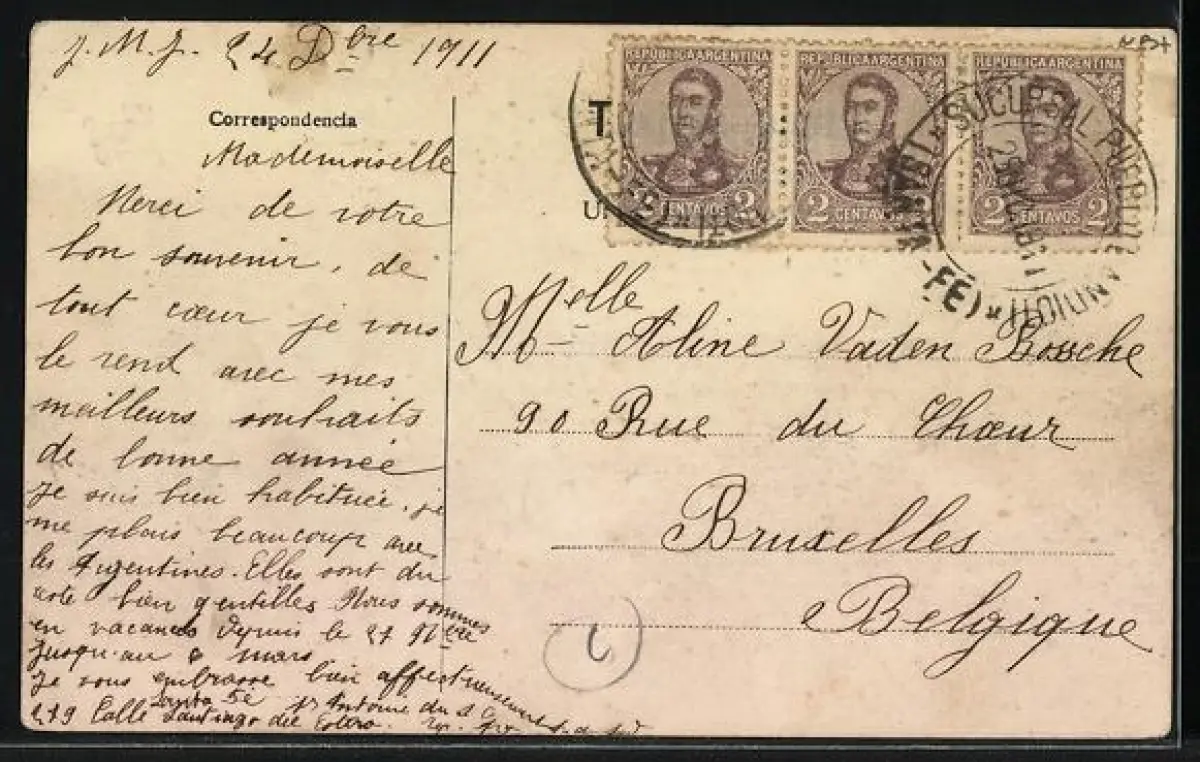 J. M. J. 24 Dbre 1911
Correspondencia
Mademoiselle
Merci de votre
bon souvenir, de
tout cœur je vous
le rend avec mes
meilleurs souhaits
de bonne année
Je suis bien habituée, je
me plais beaucoup avec
les Argentines. Elles sont du
reste bien gentilles Nous sommes
en vacances depuis le 27 9bre
jusqu'au 8 mars
Je vous embrasse bien affectueusement
Antoine du
279 Calle Santiago del Estero
REPÚBLICA ARGENTINA
2 CENTAVOS 2
REPÚBLICA ARGENTINA
2 CENTAVOS 2
REPÚBLICA ARGENTINA
2 CENTAVOS 2
SUCURSAL
FÉ)
Melle Aline Vaden Bossche
90 Rue du Chœur
Bruxelles
Belgique